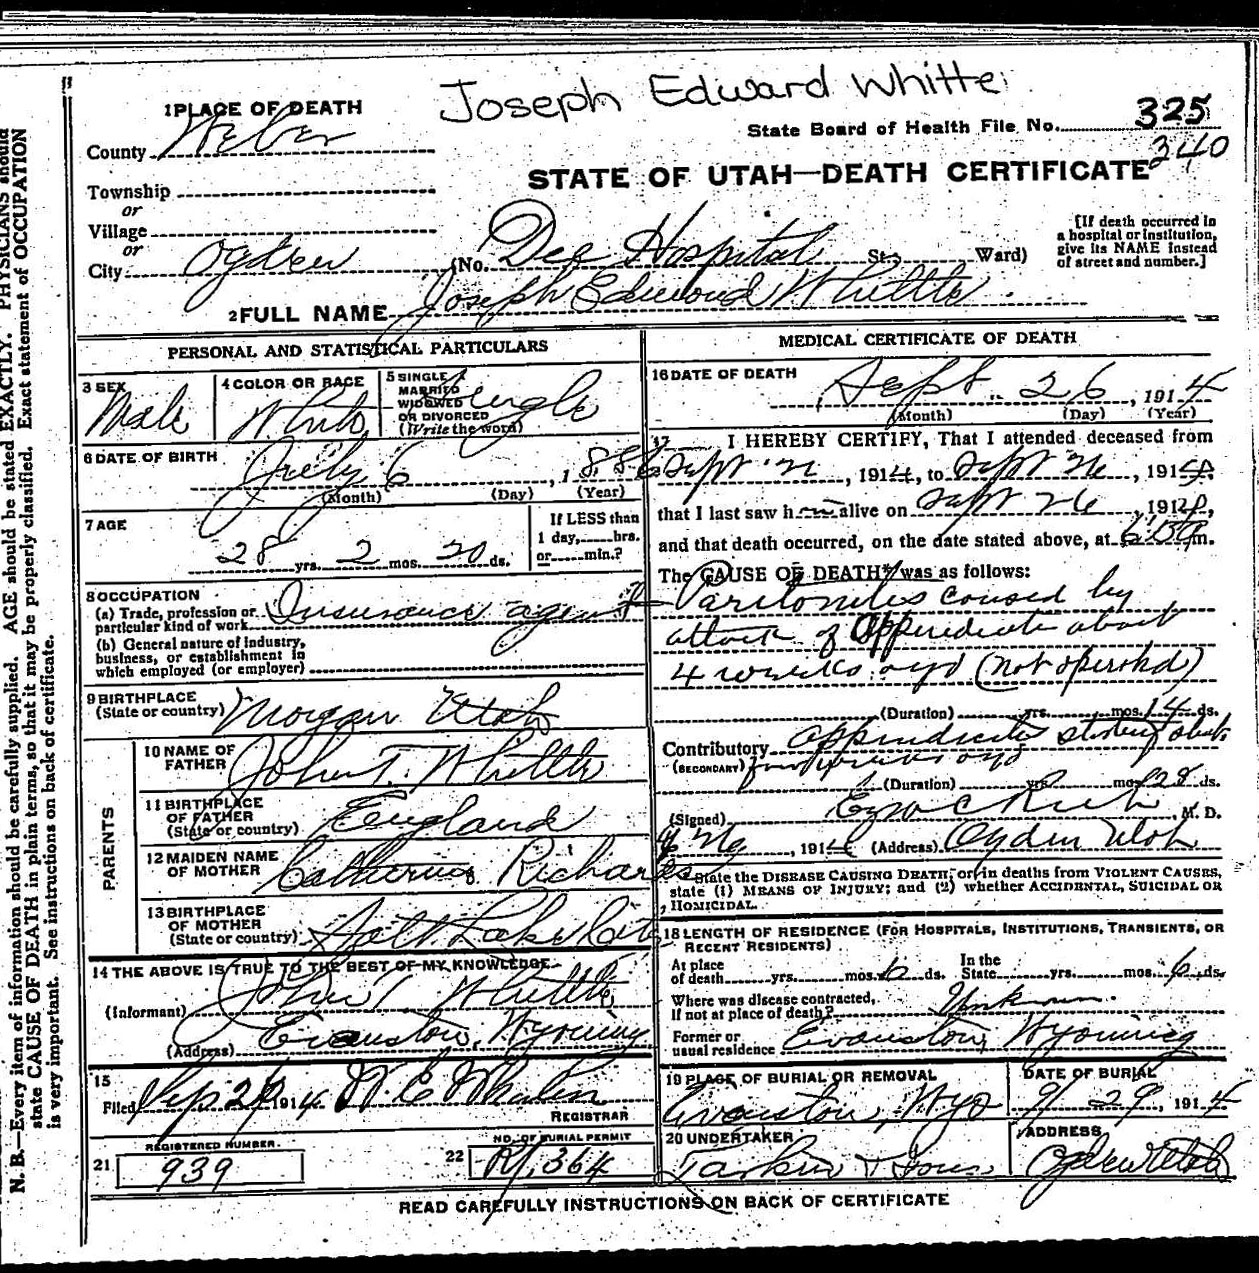 Joseph Edward Whitte
1 PLACE OF DEATH
State Board of Health File No. 325
340
County Weber
STATE OF UTAH—DEATH CERTIFICATE
Township
or
Village
or
City Ogden (No. Dee Hospital St., Ward)
[If death occurred in a hospital or institution, give its NAME instead of street and number.]
2 FULL NAME Joseph Edward Whittle
PERSONAL AND STATISTICAL PARTICULARS
3 SEX Male
4 COLOR OR RACE White
5 SINGLE MARRIED WIDOWED OR DIVORCED (Write the word) Single
6 DATE OF BIRTH July 6, 1886
(Month) (Day) (Year)
7 AGE 28 yrs. 2 mos. 20 ds.
If LESS than 1 day, hrs. or min.?
8 OCCUPATION
(a) Trade, profession or particular kind of work Insurance agent
(b) General nature of industry, business, or establishment in which employed (or employer)
9 BIRTHPLACE (State or country) Morgan Utah
PARENTS
10 NAME OF FATHER John T. Whittle
11 BIRTHPLACE OF FATHER (State or country) England
12 MAIDEN NAME OF MOTHER Catherine Richards
13 BIRTHPLACE OF MOTHER (State or country) Salt Lake City
14 THE ABOVE IS TRUE TO THE BEST OF MY KNOWLEDGE
(Informant) John T Whittle
(Address) Evanston, Wyoming
15
Filed Sep 29 1914 W. E. Whalen
REGISTRAR
21 REGISTERED NUMBER 939
22 NO. OF BURIAL PERMIT 364
MEDICAL CERTIFICATE OF DEATH
16 DATE OF DEATH Sept. 26, 1914
(Month) (Day) (Year)
17 I HEREBY CERTIFY, That I attended deceased from
Sept 21, 1914, to Sept 26, 1914,
that I last saw him alive on Sept 26, 1914,
and that death occurred, on the date stated above, at m.
The CAUSE OF DEATH* was as follows:
Paritonites caused by
attack of Appendicitis about
4 weeks ago (not operated)
(Duration) yrs. mos. 14 ds.
Contributory appendicitis about
(SECONDARY) four weeks ago
(Duration) yrs. mos. 28 ds.
(Signed) Ezra C Rich, M. D.
26, 1914 (Address) Ogden Utah
State the DISEASE CAUSING DEATH, or in deaths from VIOLENT CAUSES,
state (1) MEANS OF INJURY; and (2) whether ACCIDENTAL, SUICIDAL OR
HOMICIDAL.
18 LENGTH OF RESIDENCE (FOR HOSPITALS, INSTITUTIONS, TRANSIENTS, OR
RECENT RESIDENTS)
At place of death yrs. mos. 6 ds. In the State yrs. mos. 6 ds.
Where was disease contracted, If not at place of death? Unknown.
Former or usual residence Evanston, Wyoming
19 PLACE OF BURIAL OR REMOVAL Evanston, Wyo
DATE OF BURIAL 9/29, 1914
20 UNDERTAKER Larkin & Sons
ADDRESS Ogden Utah
READ CAREFULLY INSTRUCTIONS ON BACK OF CERTIFICATE
N. B.—Every item of information should be carefully supplied. AGE should be stated EXACTLY. PHYSICIANS should
state CAUSE OF DEATH in plain terms, so that it may be properly classified. Exact statement of OCCUPATION
is very important. See instructions on back of certificate.